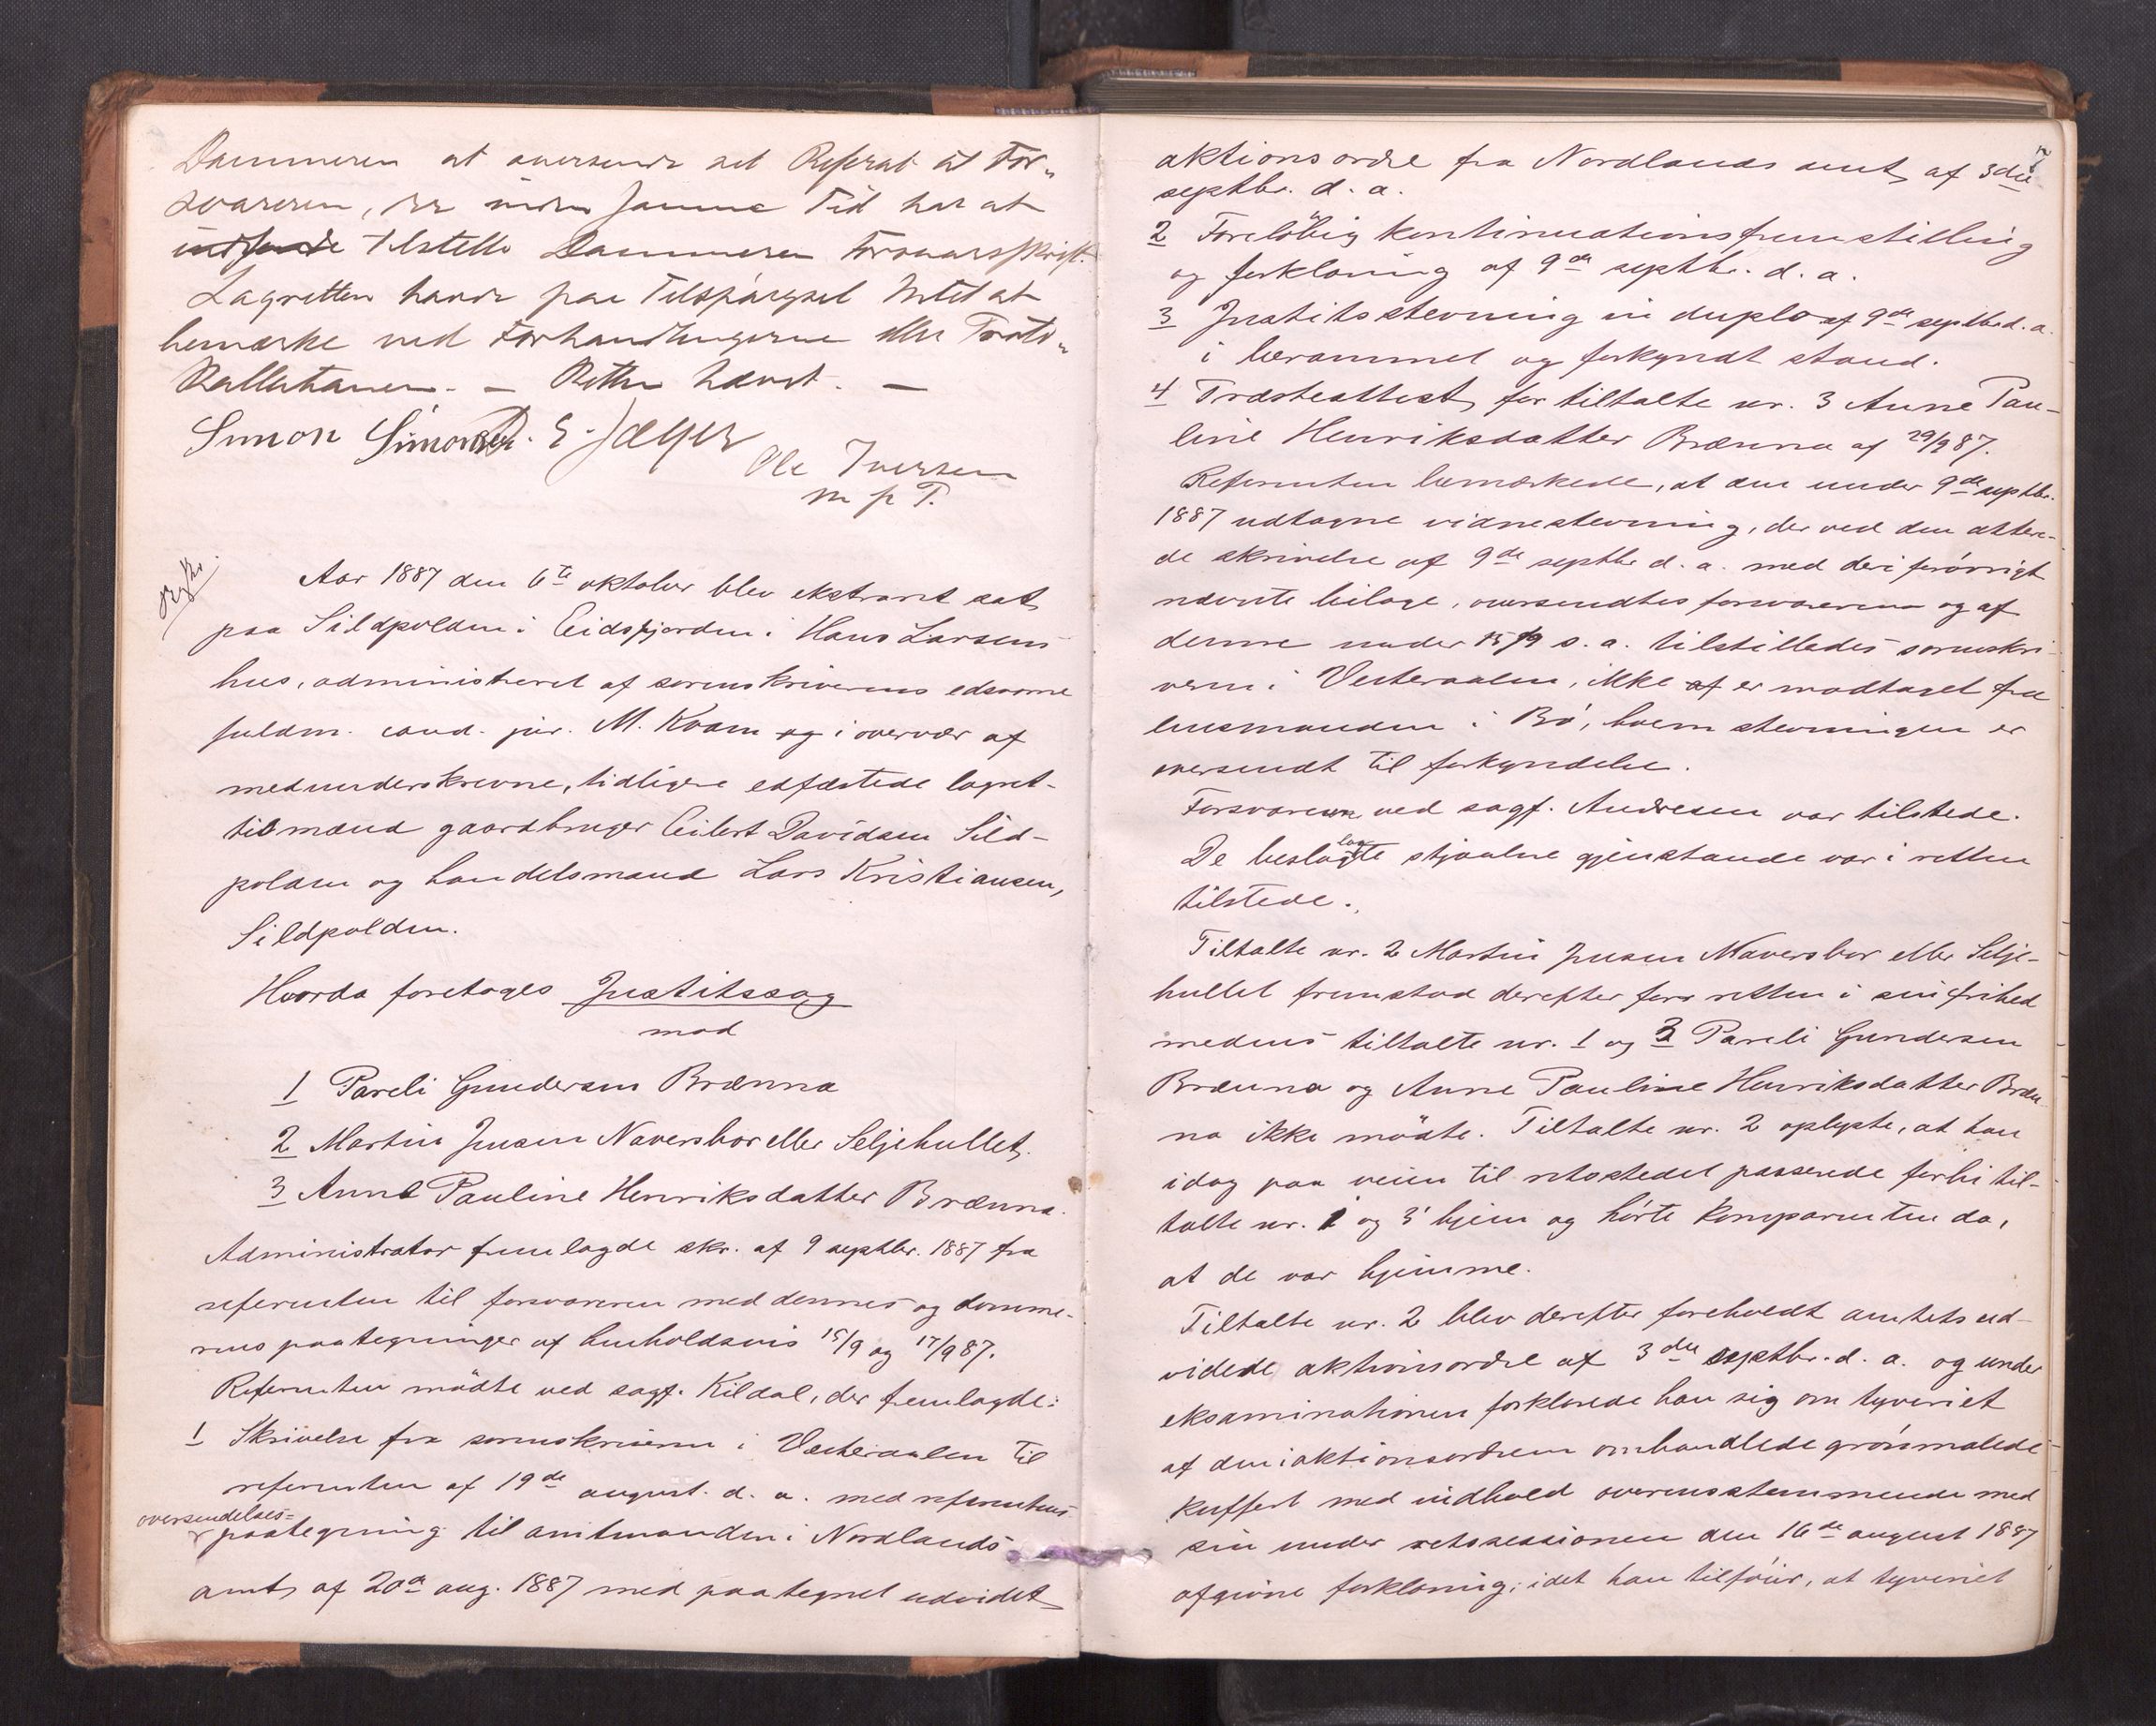 Dommeren at oversende det Referat til For„
svareren, der inden samme Tid har at
indsende tilstille Dommeren Forsvarsskrift.
Lagretten havde paa Tilspørgsel Intet at
bemærke ved Forhandlingerne eller Proto„
kollationen. — Retten hævet. —
Simon Simonsen. E. Jæger
Ole Iversen
m p P.
Aar 1887 den 6te oktober blev ekstraret sat
paa Sildpolden i Eidsfjorden i Hans Larsens
hus, administreret af sorenskriverens edsvorne
fuldm. cand. jur. M. Kvam og i overvær af
medunderskrevne, tidligere edfæstede lagret-
tesmænd gaardbruger Eilert Davidsen Sild-
polden og handelsmand Lars Kristiansen,
Sildpolden.
Hvorda foretoges Justitssag
mod
1 Pareli Gundersen Brænna
2 Martin Jensen Naversbor eller Seljehullet.
3 Anne Pauline Henriksdatter Brænna.
Administrator fremlagde skr. af 9 septbr. 1887 fra
referenten til forsvareren med dennes og domme-
rens paategninger af henholdsvis 15/9 og 17/9 87.
Referenten mødte ved sagf. Kildal, der fremlagde:
1 Skrivelse fra sorenskriveren i Vesteraalen til
referenten af 19de august d. a. med referentens
oversendelses=
paategning til amtmanden i Nordlands
amt af 20de aug. 1887 med paategnet udvidet
aktionsordre fra Nordlands amt af 3die
septbr. d. a.
2 Foreløbig kontinuationsfremstilling
og forklaring af 9de septbr. d. a.
3 Justitsstevning in duplo af 9de septbr. d. a.
i berammet og forkyndt stand.
4 Præsteattest for tiltalte nr. 3 Anne Pau-
line Henriksdatter Brænna af 29/9 87.
Referenten bemærkede, at den under 9de septbr.
1887 udtagne vidnestevning, der ved den attere-
de skrivelse af 9de septbr. d. a. med deri forøvrigt
nævnte bilage, oversendtes forsvareren og af
denne under 15/9 s. a. tilstilledes sorenskri-
veren i Vesteraalen, ikke af er modtaget fra
lensmanden i Bø, hvem stevningen er
oversendt til forkyndelse.
Forsvareren ved sagf. Andresen var tilstede.
De beslaglagte stjaalne gjenstande var i retten
tilstede.
Tiltalte nr. 2 Martin Jensen Naversbor eller Selje-
hullet fremstod derefter for retten i sin frihed
medens tiltalte nr. 1 og 3 Pareli Gundersen
Brænna og Anne Pauline Henriksdatter Bræn-
na ikke mødte. Tiltalte nr. 2 oplyste, at han
idag paa veien til retsstedet passerede forbi til-
talte nr. 1 og 3' hjem og hørte komparenten da,
at de var hjemme.
Tiltalte nr. 2 blev derefter foreholdt amtets ud-
videde aktionsordre af 3die septbr. d. a. og under
eksaminationen forklarede han sig om tyveriet
af den i aktionsordren omhandlede grønmalede
kuffert med indhold overensstemmende med
sin under retssessionen den 16de august 1887
afgivne forklaring, idet han tilføier, at tyveriet